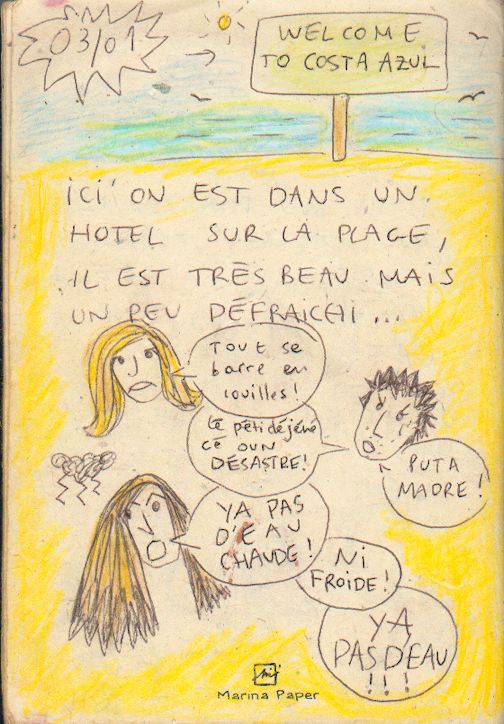 03/01
WELCOME
TO COSTA AZUL
ICI ON EST DANS UN
HOTEL SUR LA PLAGE,
IL EST TRÈS BEAU MAIS
UN PEU DÉFRAICHI...
TOUT se
barre en
couilles!
Le pétidéjéné
cé oun
DÉSASTRE!
PUTA
MADRE!
YA PAS
D'EAU
CHAUDE!
NI
FROIDE!
YA
PAS D'EAU
!!!
Marina Paper